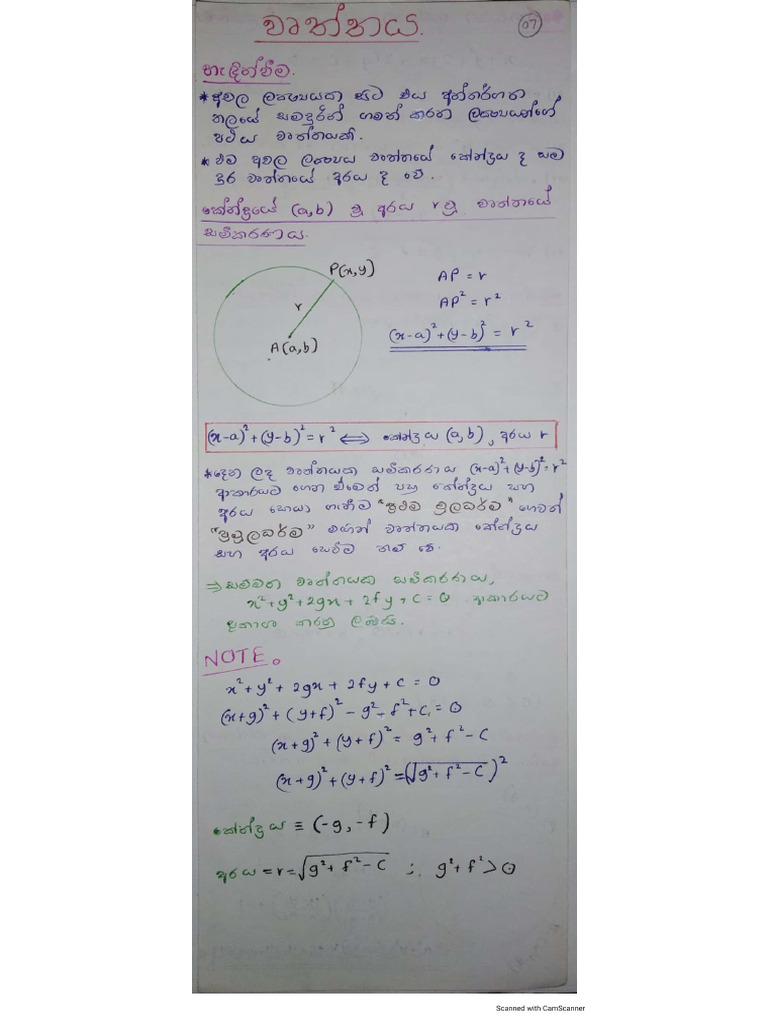 වෘත්තය.
07
හැඳින්වීම.
* අචල ලක්ෂ්‍යයක සිට එය අන්තර්ගත
තලයේ සමදුරින් ගමන් කරන ලක්ෂ්‍යයන්ගේ
පථය වෘත්තයකි.
* එම අචල ලක්ෂ්‍යය වෘත්තයේ කේන්ද්‍රය ද සම
දුර වෘත්තයේ අරය ද වේ.
කේන්ද්‍රයේ (a,b) වූ අරය r වූ වෘත්තයේ
සමීකරණය.
P(x,y)
r
A(a,b)
AP = r
AP² = r²
(x-a)²+(y-b)² = r²
(x-a)²+(y-b)²=r² ⟺ කේන්ද්‍රය (a,b), අරය r
* දෙන ලද වෘත්තයක සමීකරණය (x-a)²+(y-b)²=r²
ආකාරයට ගෙන ඒමෙන් පසු කේන්ද්‍රය සහ
අරය සොයා ගැනීම "ප්‍රථම මූලධර්ම" හෙවත්
"මූලධර්ම" වෘත්තයක කේන්ද්‍රය
සහ අරය සෙවීම නම් වේ.
⇒ සම්මත වෘත්තයක සමීකරණය,
x²+y²+2gx+2fy+C=0 ආකාරයට
ප්‍රකාශ කරනු ලබයි.
NOTE.
x²+y²+2gx+2fy+C=0
(x+g)²+(y+f)²-g²-f²+C=0
(x+g)²+(y+f)²=g²+f²-C
(x+g)²+(y+f)²=(√g²+f²-C)²
කේන්ද්‍රය ≡ (-g,-f)
අරය = r = √g²+f²-C ; g²+f²>0
Scanned with CamScanner